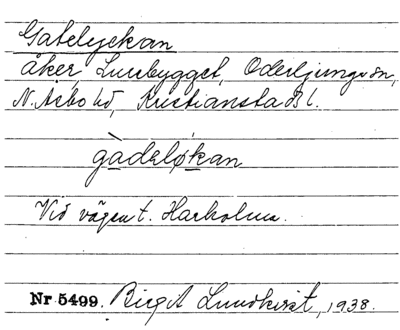 Gatelyckan
åker Lurebygget, Oderljunga sn,
N. Åsbo hd, Kristianstads l.
gàdeløkan
Vid vägen t. Harholma.
Nr 5499. Birgit Lundkvist, 1938.